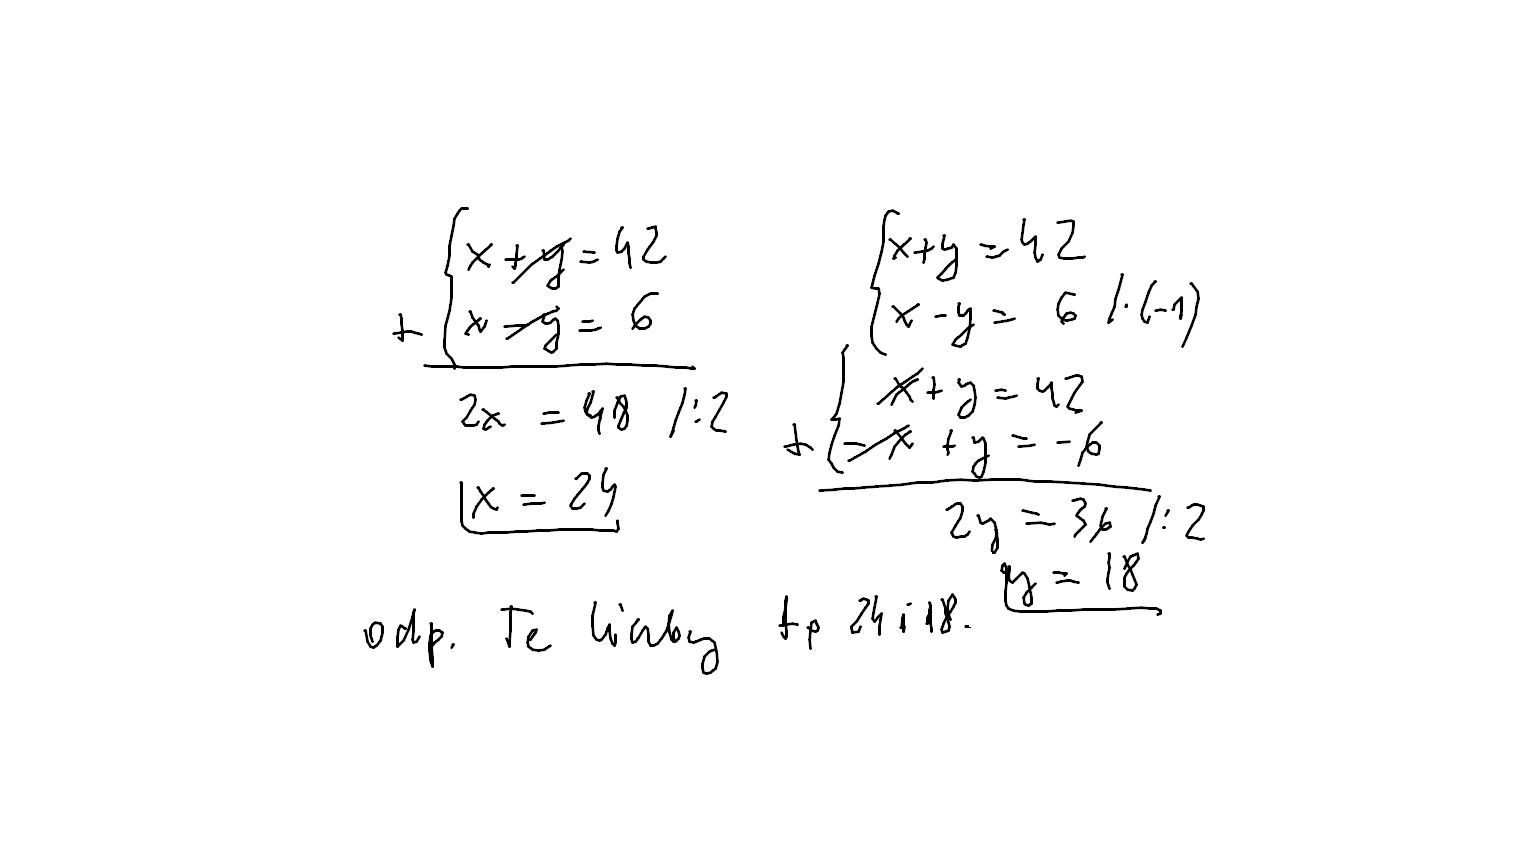 x + y = 42
+ x - y = 6
2x = 48 /:2
x = 24
x + y = 42
x - y = 6 /·(-1)
x + y = 42
+ -x + y = -6
2y = 36 /:2
y = 18
odp. Te liczby to 24 i 18.